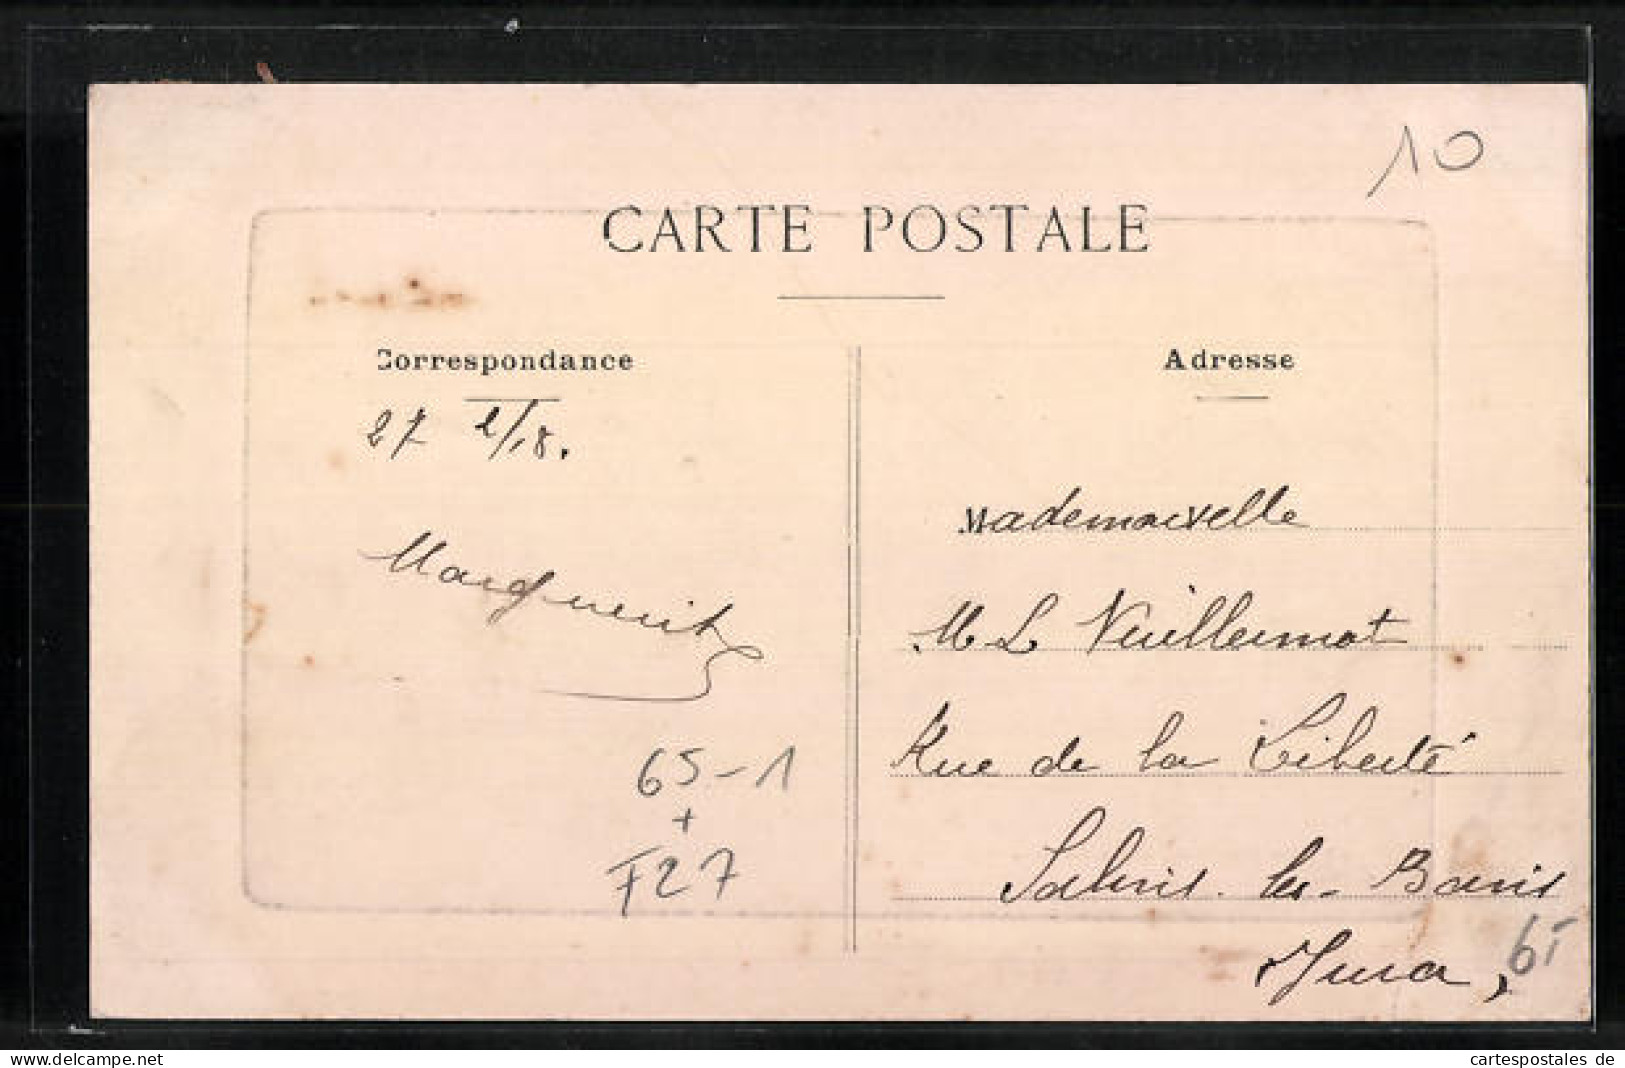 10
CARTE POSTALE
Correspondance
27 2/18.
Marguerite
65-1
+
F27
Adresse
Mademoiselle
M L Vuillermot
Rue de la Liberté
Salins-les-Bains
Jura,
65
cartespostales de